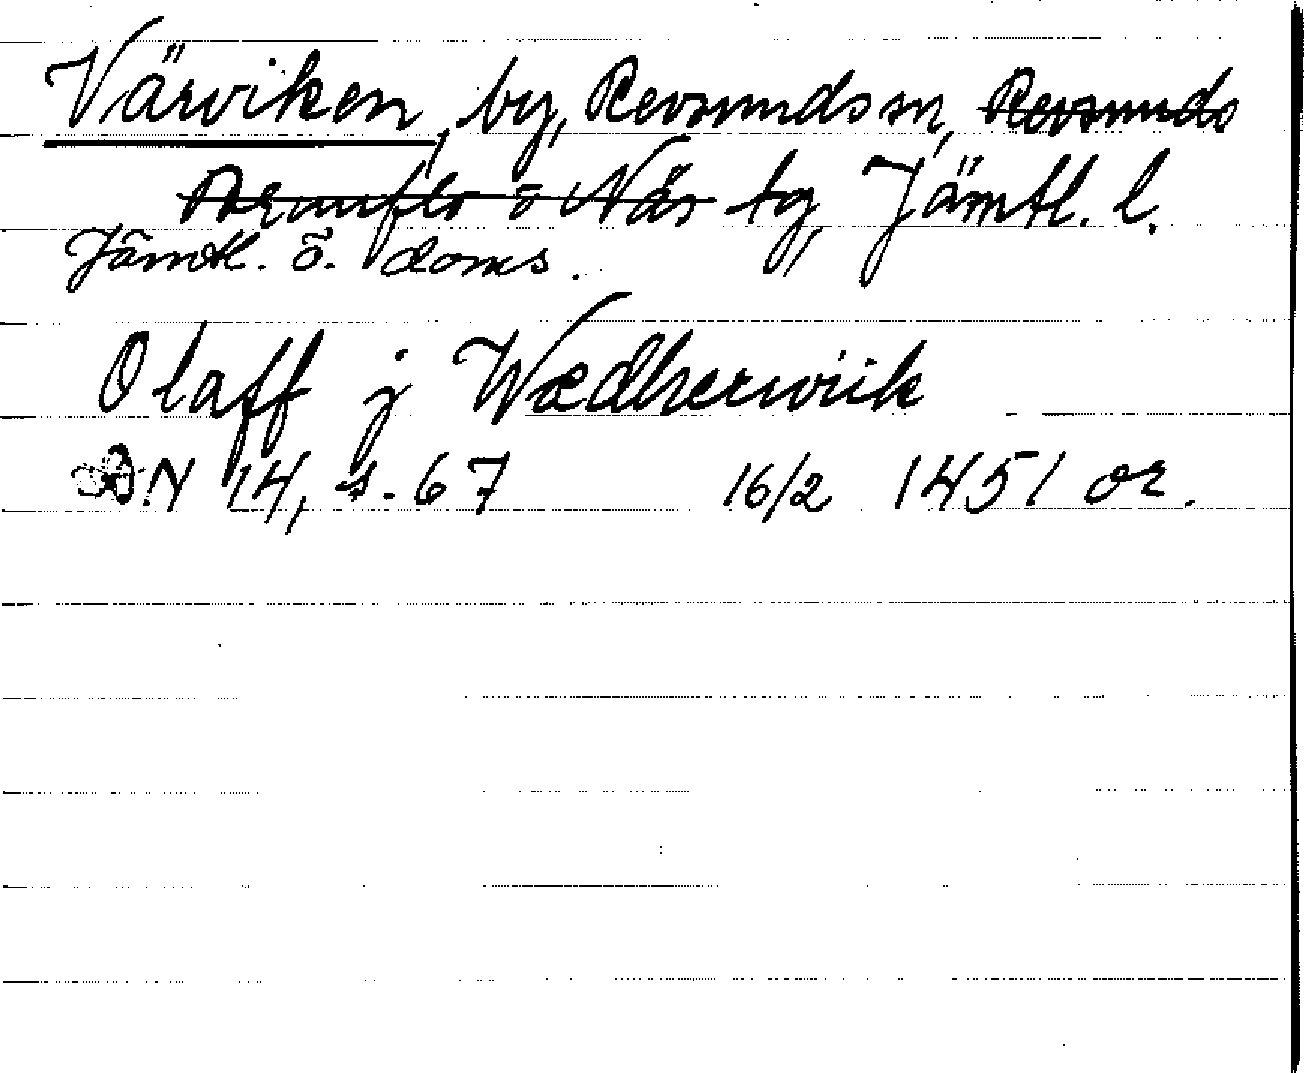 Värviken, by, Revsunds sn, Revsunds
Brunflo o Näs tg, Jämtl. l.
Jämtl. ö. doms.
Olaff j Wædherwiik
DN 14, s. 67 16/2 1451 or.